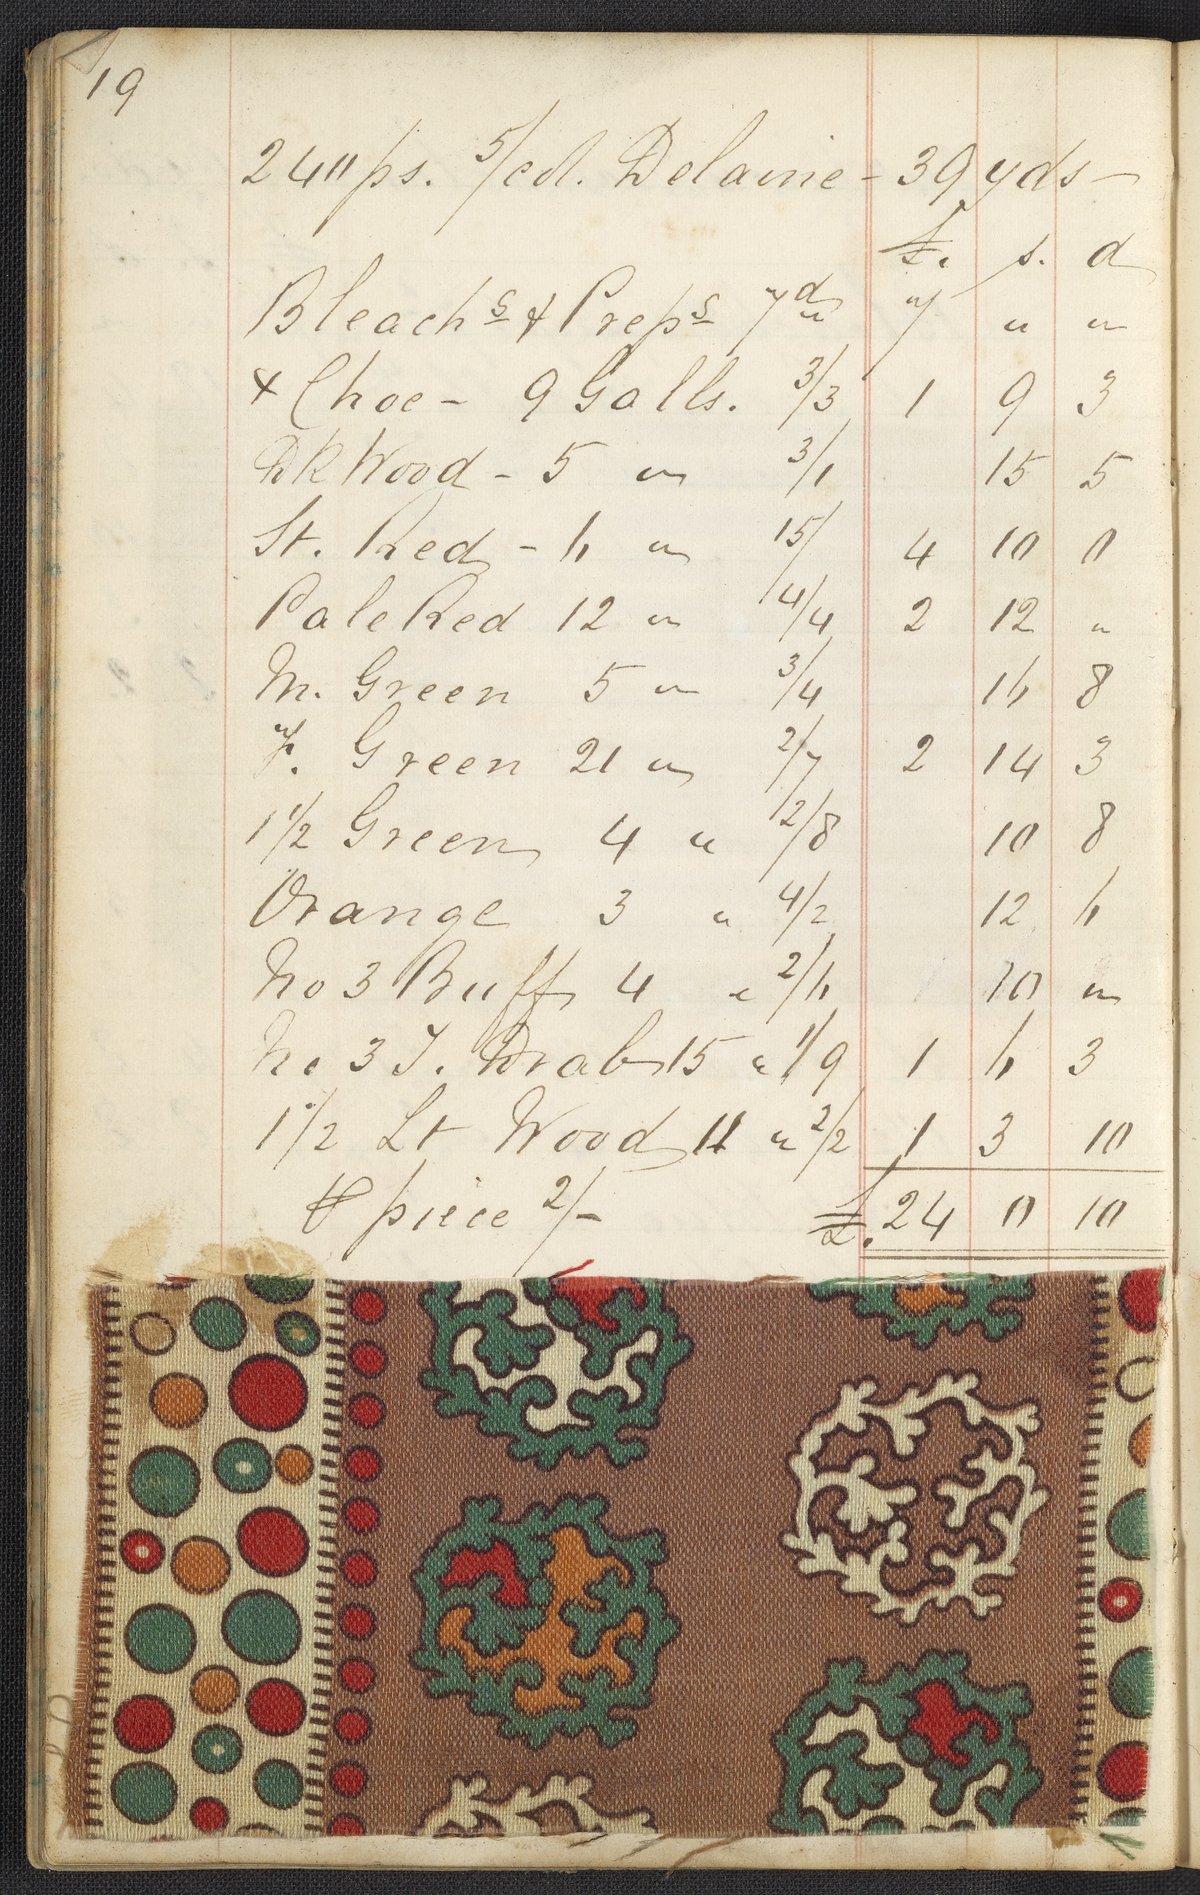 19
240 ps. 5/col. Delaine - 39 yds -
£. s. d
Bleachs & Preps 7d 7 " "
& Choe - 9 Galls. 3/3 1 9 3
Dk Wood - 5 " 3/1 15 5
St. Red - 6 " 15/ 4 10 0
Pale Red 12 " 4/4 2 12 "
M. Green 5 " 3/4 16 8
7. Green 21 " 2/7 2 14 3
1 1/2 Green 4 " 2/8 10 8
Orange 3 " 4/2 12 6
No 3 Buff 4 " 2/6 10 "
No 3 T. Drab 15 " 1/9 1 6 3
1 1/2 Lt Wood 11 " 2/2 1 3 10
⅌ piece 2/- £. 24 0 10